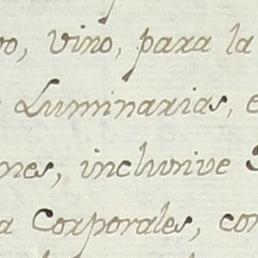 vino, para la
Luminarias,
inclusive
Corporales,